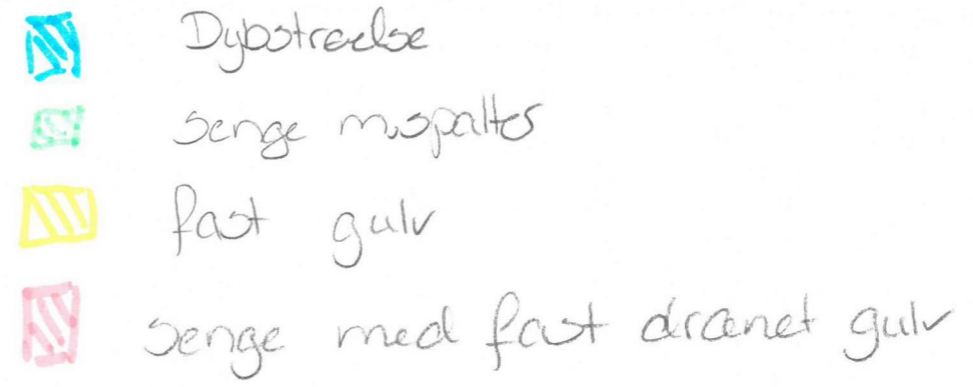 Dybstrøelse
senge m. spalter
fast gulv
senge med fast drænet gulv